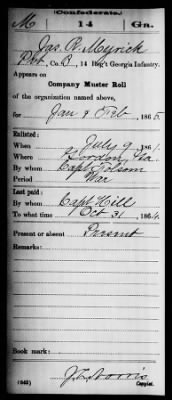 (Confederate.)
M 14 Ga.
Jas. R. Meyrick
Pvt, Co. B, 14 Reg't Georgia Infantry.
Appears on
Company Muster Roll
of the organization named above,
for Jan & Feb, 1865.
Enlisted:
When July 9, 1861.
Where Gordon, Ga.
By whom Capt. Folsom
Period War
Last paid:
By whom Capt Hill
To what time Oct 31, 1864.
Present or absent Present
Remarks:
Book mark:
(642) J. C. Norris
Copyist.